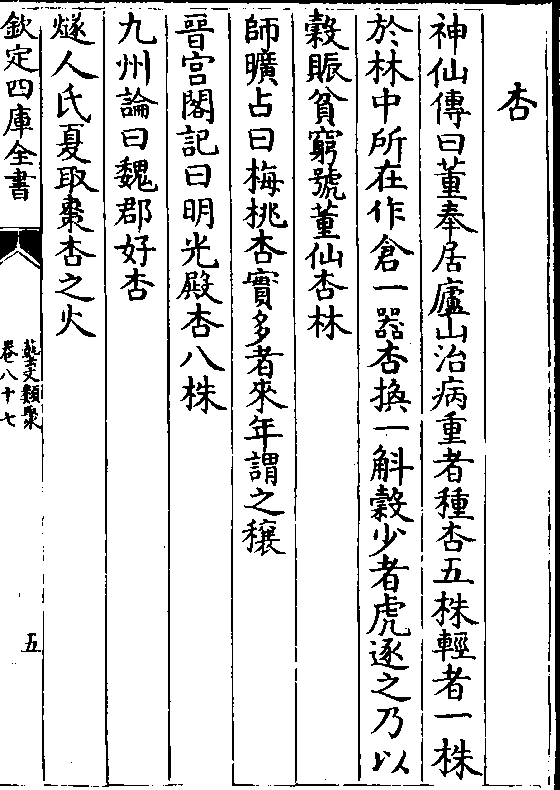 杏
神仙傳曰董奉居廬山治病重者種杏五株輕者一株
於林中所在作倉一器杏換一斛穀少者虎逐之乃以
穀賑貧窮號董仙杏林
師曠占曰梅桃杏實多者來年謂之穰
晉宫閣記曰明光殿杏八株
九州論曰魏郡好杏
燧人氏夏取棗杏之火
欽定四庫全書
藝文類聚
卷八十七
五